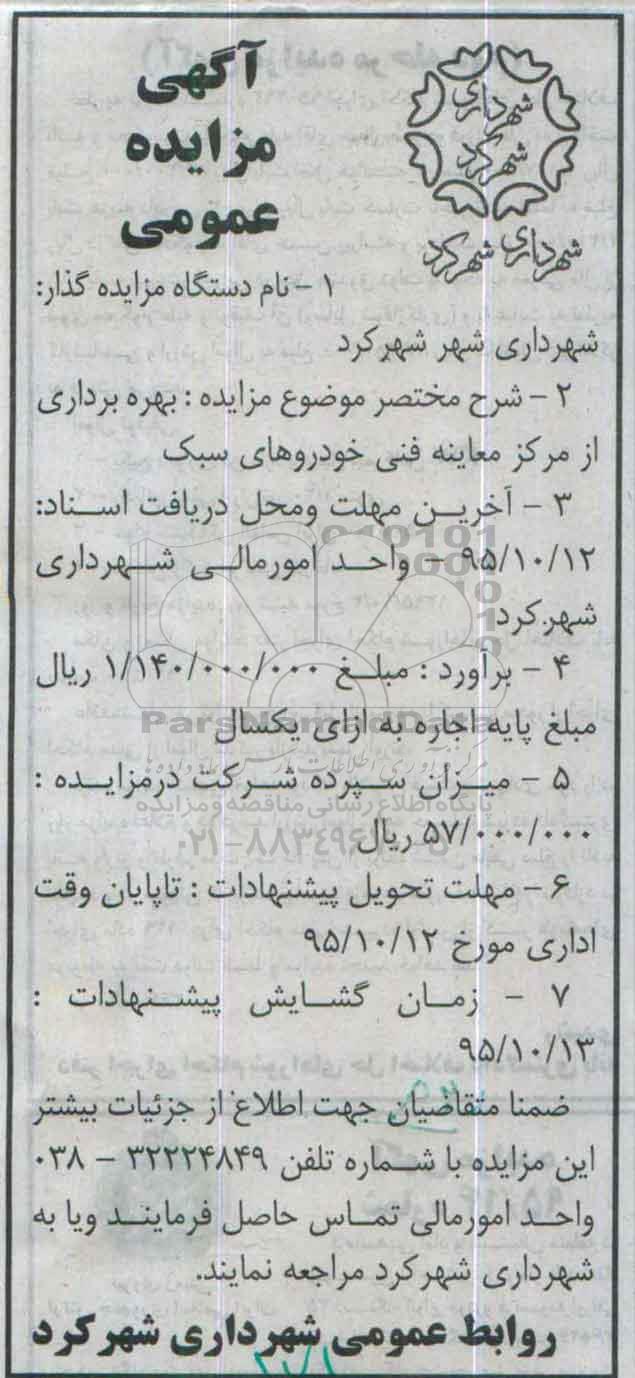 آگهی
مزایده
عمومی
شهرداری
شهرکرد
شهرداری شهرکرد
۱ – نام دستگاه مزایده گذار:
شهرداری شهر شهرکرد
۲ – شرح مختصر موضوع مزایده : بهره برداری
از مرکز معاینه فنی خودروهای سبک
۳ – آخرین مهلت ومحل دریافت اسناد:
۹۵/۱۰/۱۲ – واحد امورمالی شهرداری
شهرکرد
۴ – برآورد : مبلغ ۱/۱۴۰/۰۰۰/۰۰۰ ریال
مبلغ پایه اجاره به ازای یکسال
ParsNamadData
۵ – میزان سپرده شرکت درمزایده :
پایگاه اطلاع رسانی مناقصه ومزایده
۵۷/۰۰۰/۰۰۰ ریال
۶ – مهلت تحویل پیشنهادات : تاپایان وقت
اداری مورخ ۹۵/۱۰/۱۲
۷ – زمان گشایش پیشنهادات :
۹۵/۱۰/۱۳
ضمنا متقاضیان جهت اطلاع از جزئیات بیشتر
این مزایده با شماره تلفن ۳۲۲۲۴۸۴۹ – ۰۳۸
واحد امورمالی تماس حاصل فرمایند ویا به
شهرداری شهرکرد مراجعه نمایند.
روابط عمومی شهرداری شهرکرد